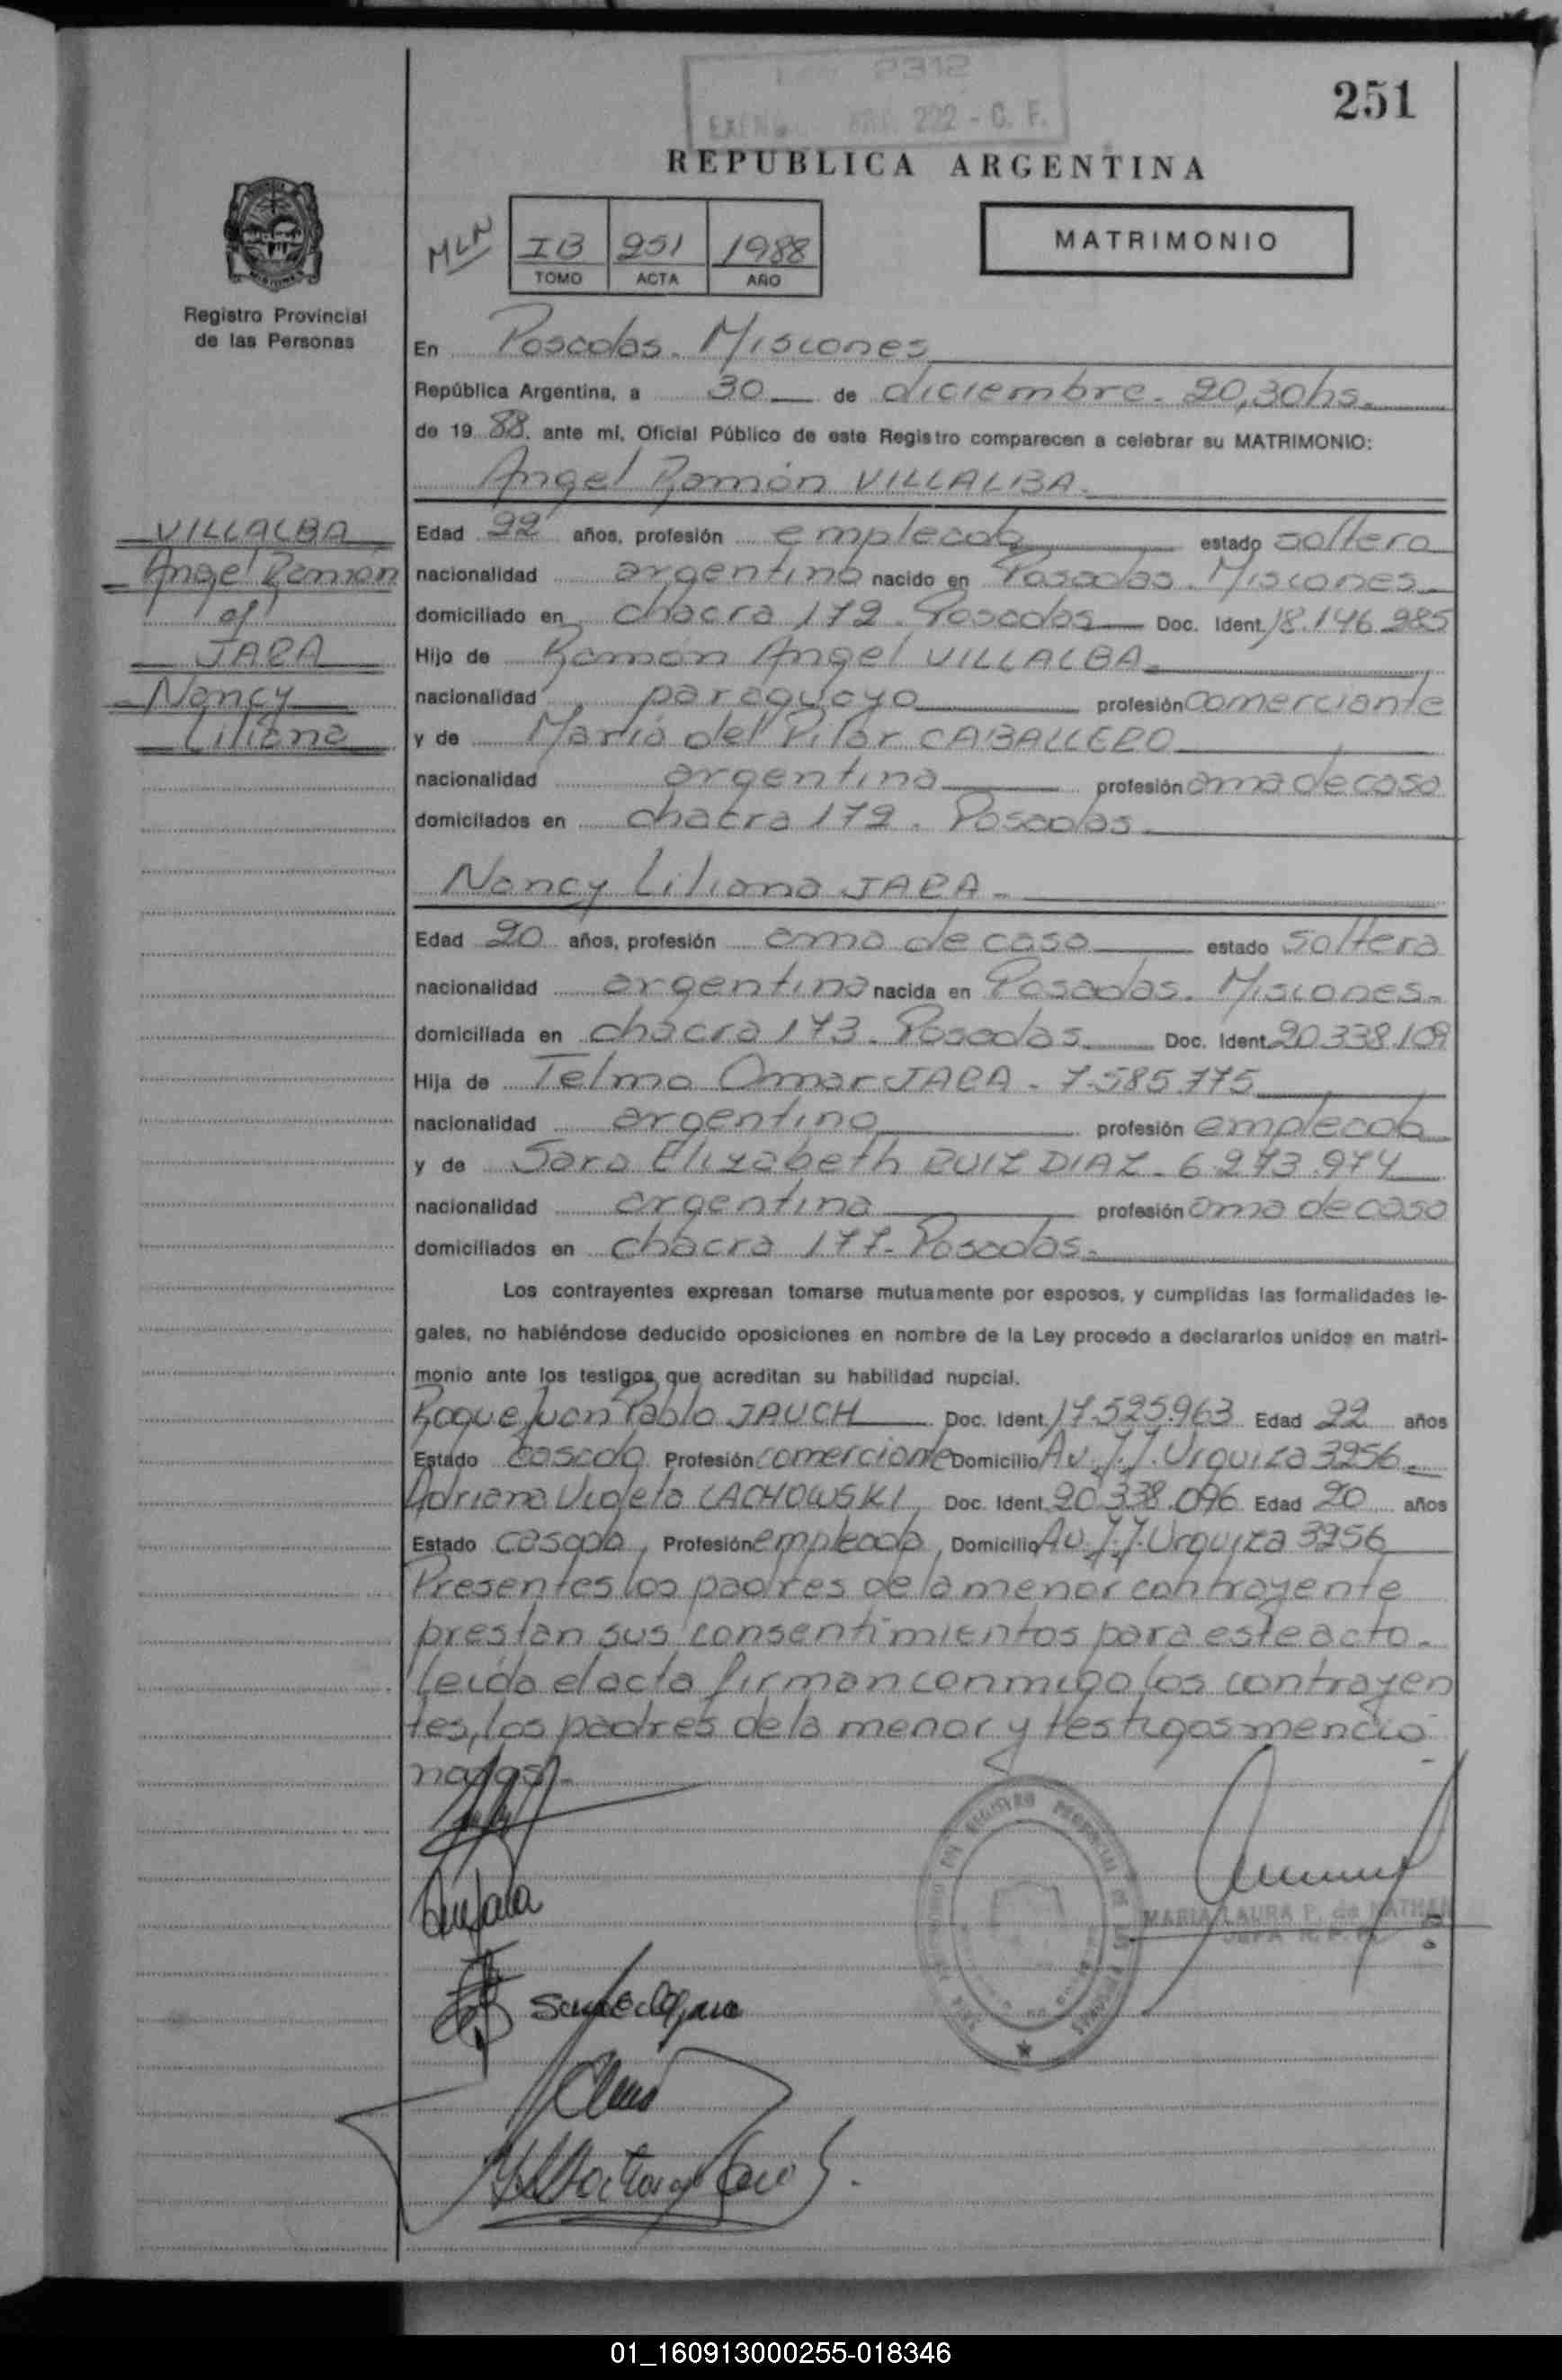 2312
222 - C. F.
251
REPUBLICA ARGENTINA
MLN
IB 251 1988
TOMO ACTA AÑO
MATRIMONIO
Registro Provincial
de las Personas
En Posadas. Misiones
República Argentina, a 30 de diciembre. 20,30hs.
de 19 88. ante mí, Oficial Público de este Registro comparecen a celebrar su MATRIMONIO:
Angel Ramón VILLALBA.
VILLALBA
Angel Ramón
c/
JARA
Nancy
Liliana
Edad 22 años, profesión empleado estado soltero
nacionalidad argentino nacido en Posadas. Misiones
domiciliado en chacra 172. Posadas Doc. Ident. 18.146.985
Hijo de Ramón Angel VILLALBA.
nacionalidad paraguayo profesión comerciante
y de María del Pilar CABALLERO
nacionalidad argentina profesión ama de casa
domiciliados en chacra 172. Posadas
Nancy Liliana JARA.
Edad 20 años, profesión ama de casa estado soltera
nacionalidad argentina nacida en Posadas. Misiones.
domiciliada en chacra 173. Posadas Doc. Ident. 20.338.109
Hija de Telmo Omar JARA - 7.585.775
nacionalidad argentino profesión empleado
y de Sara Elizabeth RUIZ DIAZ - 6.273.974
nacionalidad argentina profesión ama de casa
domiciliados en chacra 177. Posadas.
Los contrayentes expresan tomarse mutuamente por esposos, y cumplidas las formalidades le-
gales, no habiéndose deducido oposiciones en nombre de la Ley procedo a declararlos unidos en matri-
monio ante los testigos que acreditan su habilidad nupcial.
Roque Juan Pablo JAUCH Doc. Ident. 17.525.963 Edad 22 años
Estado casado Profesión comerciante Domicilio Av. J.J. Urquiza 3256.
Adriana Violeta LACHOWSKI, Doc. Ident. 20.338.096 Edad 20 años
Estado casada, Profesión empleada, Domicilio Av. J.J. Urquiza 3256
Presentes los padres de la menor contrayente
prestan sus consentimientos para este acto.
leída el acta firman conmigo los contrayen
tes, los padres de la menor y testigos mencio
nados.-
MARIA LAURA P. de NATHAN
JEFA R. P. P.
01_160913000255-018346